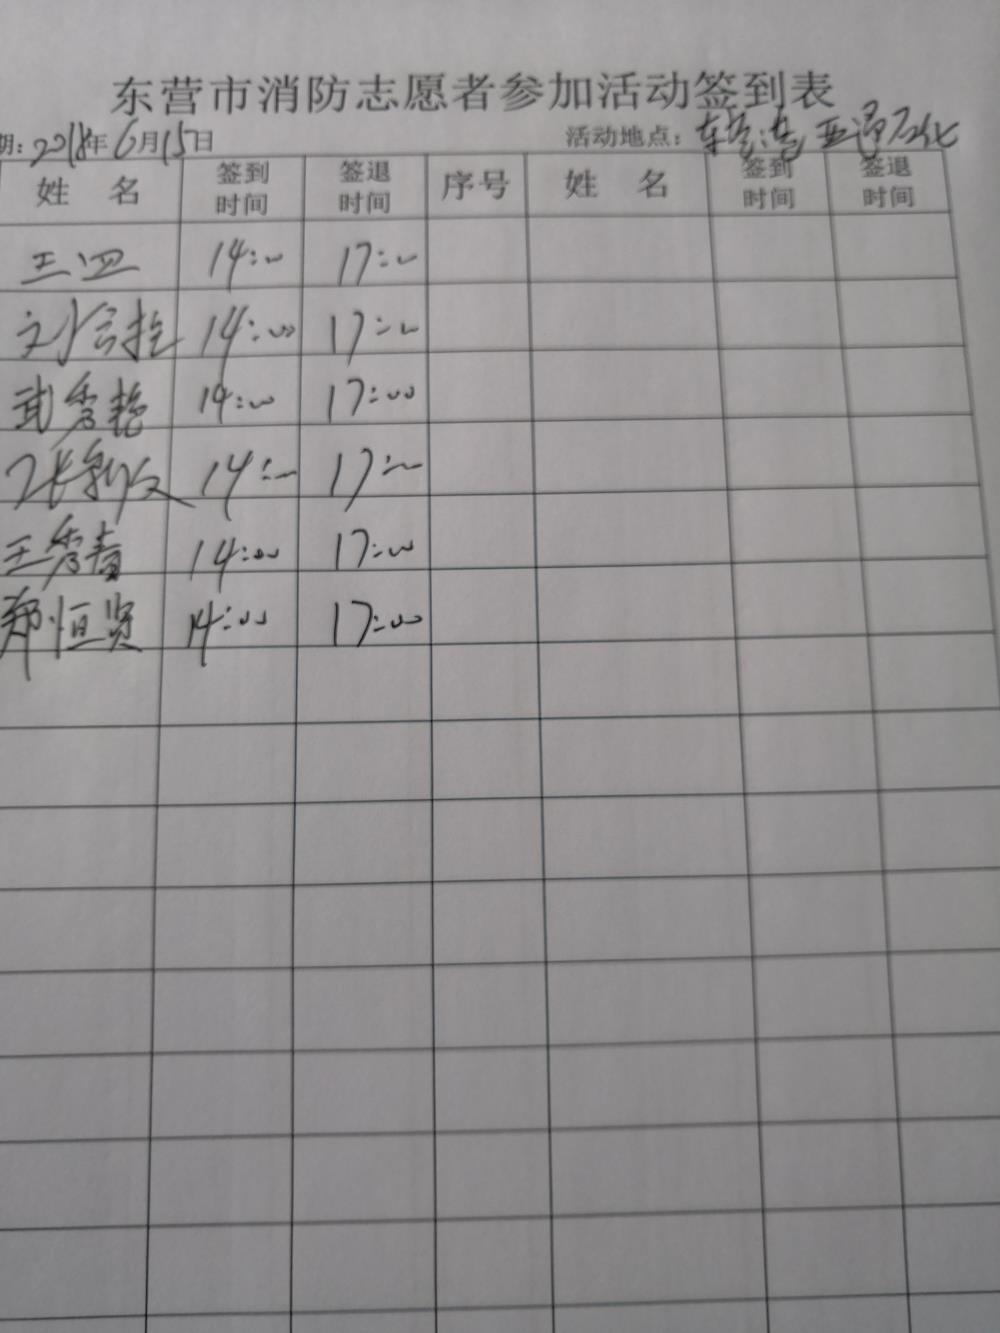 东营市消防志愿者参加活动签到表
期：2018年6月15日 活动地点：东营港亚通石化
姓 名 签到时间 签退时间 序号 姓 名 签到时间 签退时间
王 14:00 17:00
刘 14:00 17:00
武秀艳 14:00 17:00
张新友 14:00 17:00
王秀春 14:00 17:00
郑恒贤 14:00 17:00